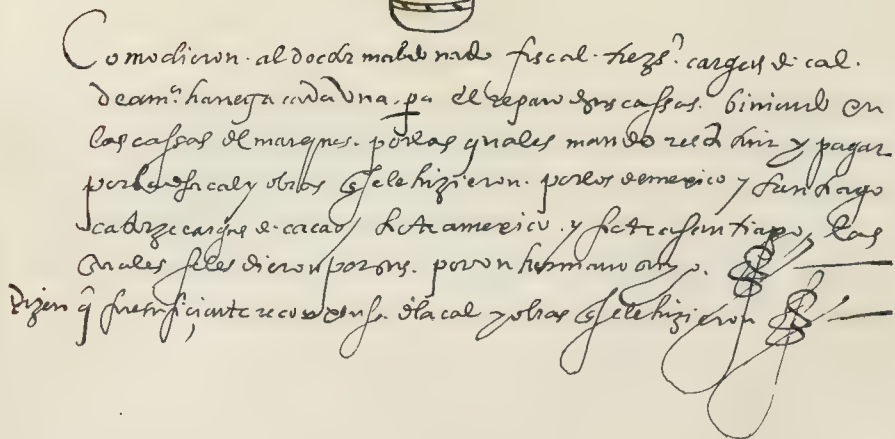 Como dieron. al docdor maldonado fiscal. trezs.os cargas de cal.
de a mª hanega cada Una. pª el reparo de sus cassas. biniendo en
las cassas del marques. por las quales mando restituir y pagar
por la dha cal y obras q̃ se le hizieron. por los de mexico y santiago
catorze cargas de cacao, siete a mexico. y siete a santiago, las
quales se les dieron por sus. por un hermano suyo.
dizen q̃ fue suficiente recompensa. de la cal y obras q̃ se le hizieron